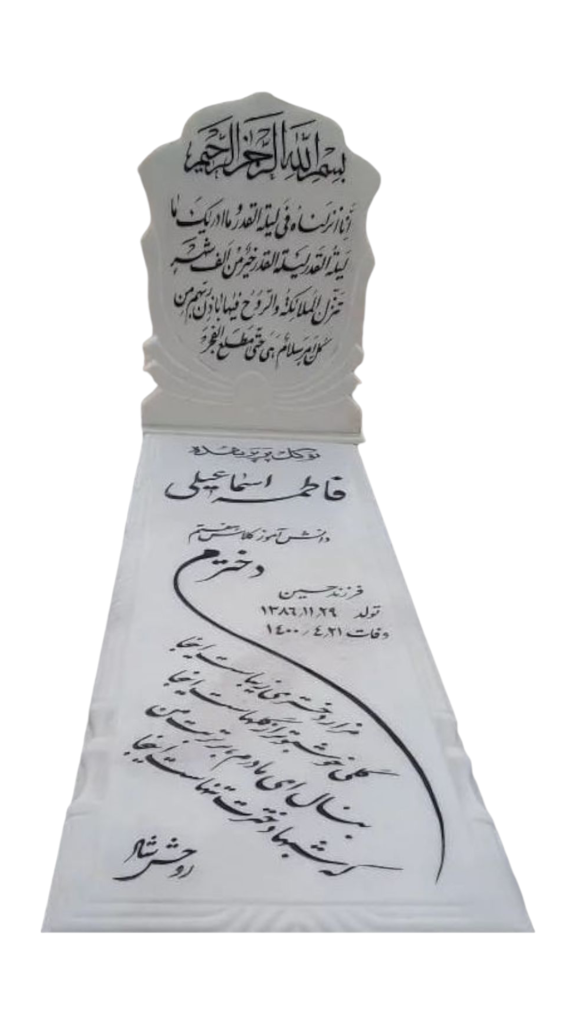 بسم الله الرحمن الرحیم
انا انزلناه فی لیلة القدر وما ادریک ما
لیلة القدر لیلة القدر خیر من الف شهر
تنزل الملائکة والروح فیها باذن ربهم من
کل امر سلام هی حتی مطلع الفجر
نوگل پرپر شده
فاطمه اسماعیلی
دانش آموز کلاس هفتم
دخترم
فرزند حسین
تولد ۱۳۸۶٫۱۱٫۲۹
وفات ۱۴۰۰٫۴٫۲۱
مزار دختری زیباست اینجا
گلی خوشبوتر از گلهاست اینجا
بنال ای مادرم بر تربت من
که شبها دخترت تنهاست اینجا
روحش شاد